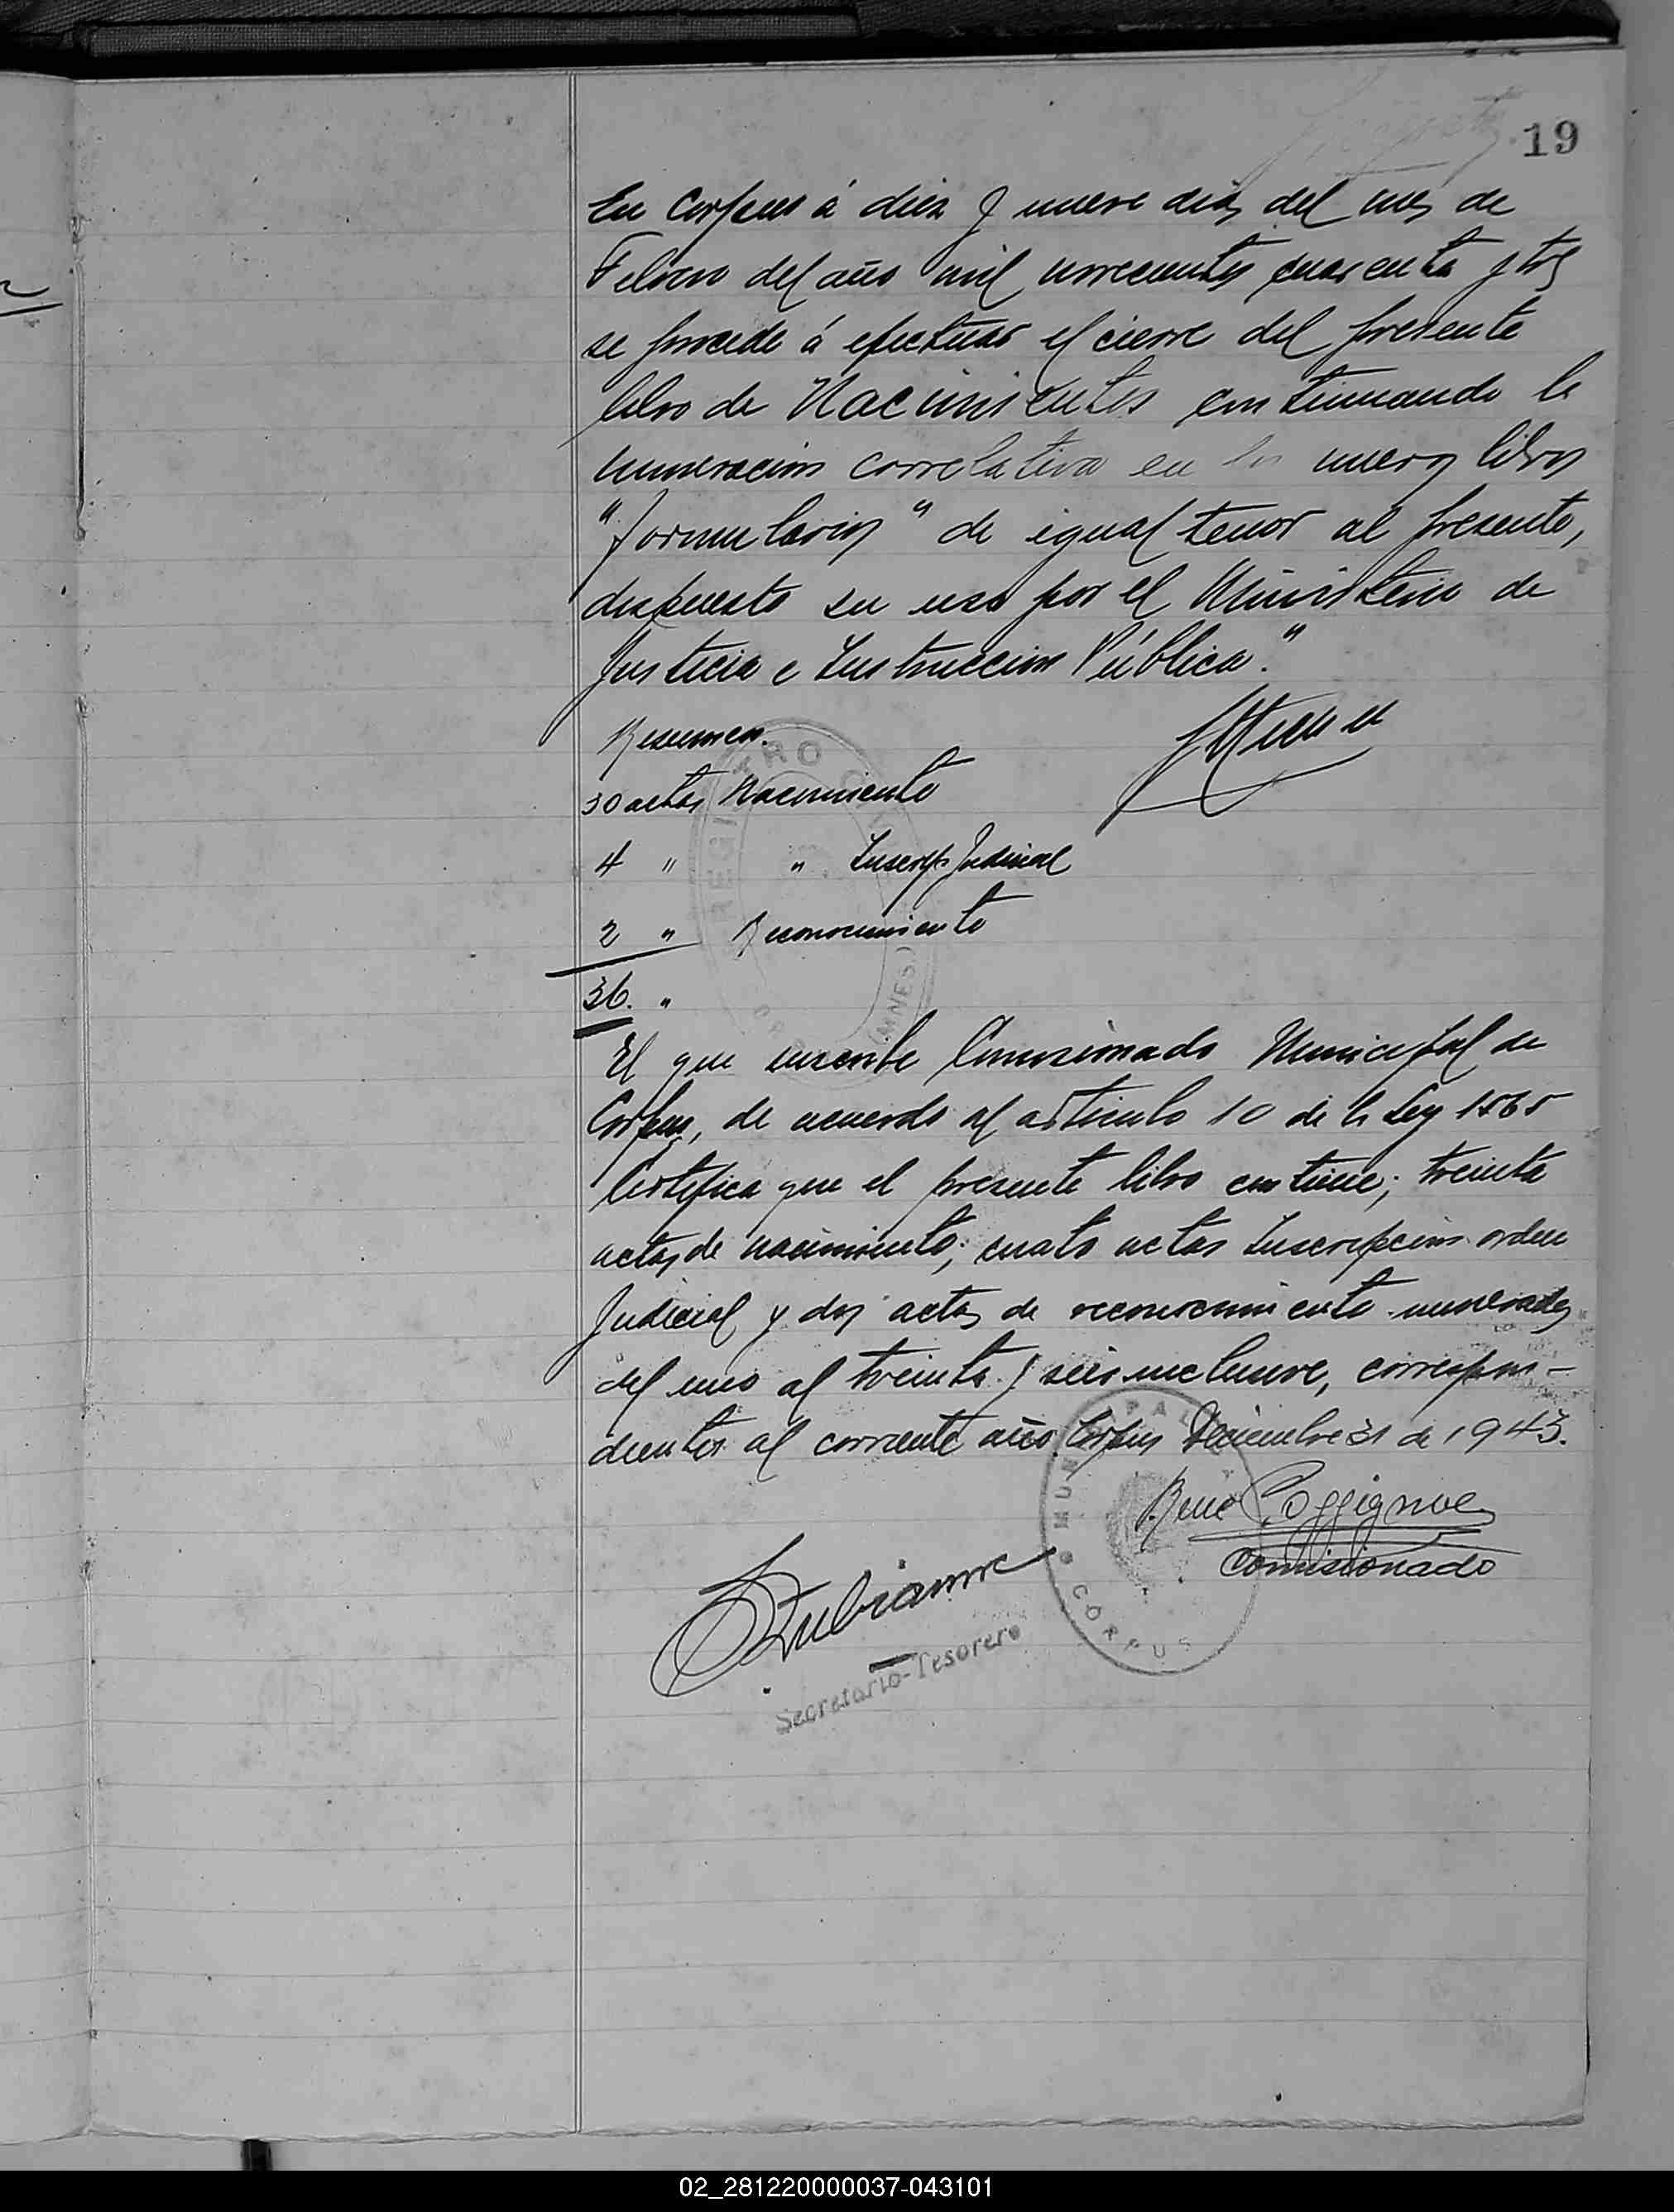 19
En Corpus á diez y nueve dias del mes de
Febrero del año mil novecientos cuarenta y tres
se procede á efectuar el cierre del presente
libro de Nacimientos continuando la
numeracion correlativa en los nuevos libros
"formularios" de igual tenor al presente,
dispuesto su uso por el Ministerio de
Justicia e Instruccion Pública."
Resumen.
30 actas Nacimiento
4 " " Inscrip. Judicial
2 " Reconocimiento
36. "
REGISTRO
El que suscribe Comisionado Municipal de
Corpus, de acuerdo al articulo 10 de la Ley 1565
Certifica que el presente libro contiene; treinta
actas de nacimiento; cuatro actas Inscripcion orden
Judicial y dos actas de reconocimiento numeradas
del uno al treinta y seis inclusive, correspon-
dientes al corriente año. Corpus Diciembre 31 de 1943.
MUNICIPAL
CORPUS
Comisionado
Secretario-Tesorero
02_281220000037-043101